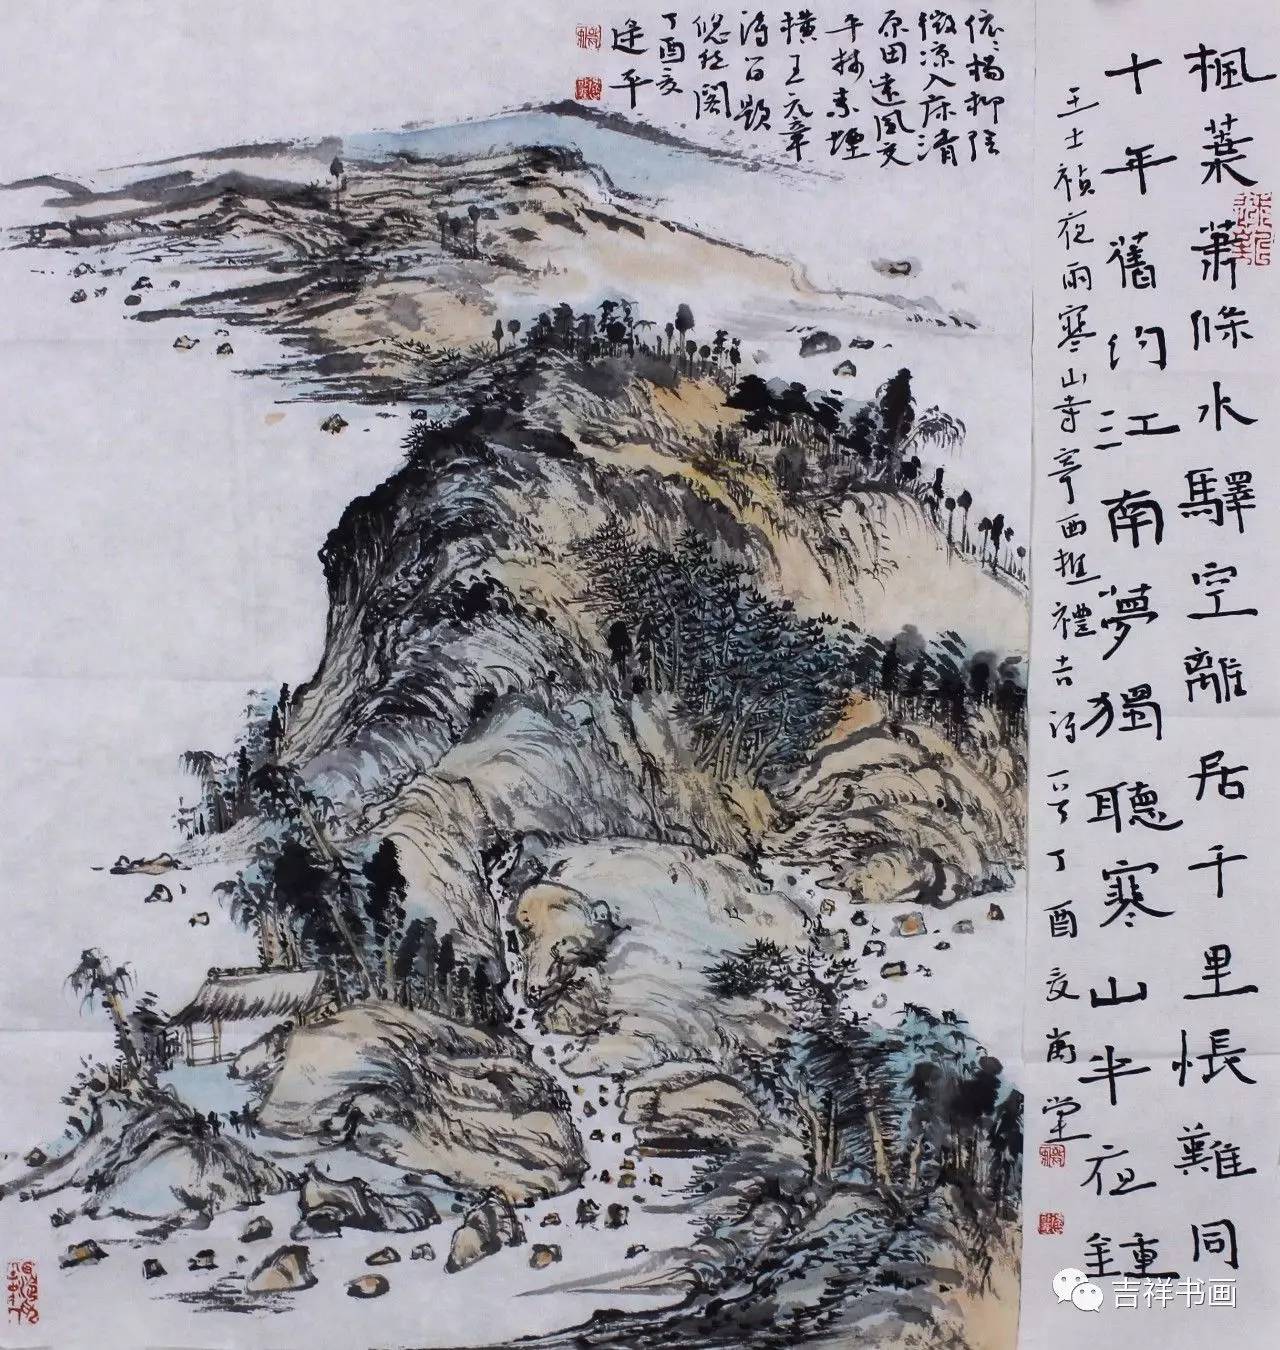 楓葉蕭條水驛空離居千里悵難同
十年舊約江南夢獨聽寒山半夜鐘
王士禎夜雨寒山寺寄西樵禮吉詩一首丁酉文禹堂
依依楊柳陰
微涼入床清
原田遠風交
平林素煙
橫王元章
詩句題
悠然閣
丁酉文
建平
吉祥书画